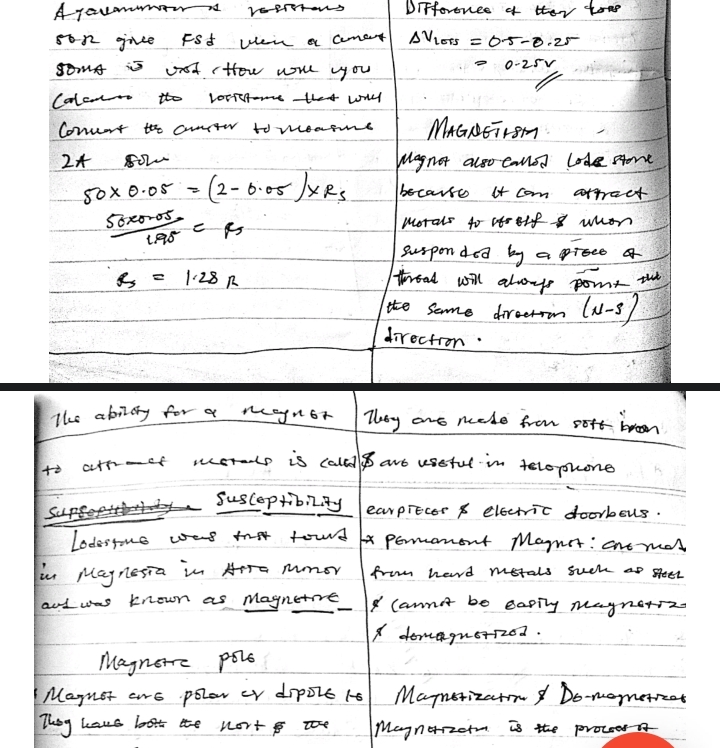 A galvanometer of resistance
50Ω gives Fsd when a current
50mA is used. How will you
Calculate the resistance that will
Convert the ammeter to measure
2A Soln
50 x 0.05 = (2 - 0.05) x Rs
50x0.05 / 1.95 = Rs
Rs = 1.28 Ω
Difference of their loss
ΔVloss = 0.5 - 0.25
= 0.25V
MAGNETISM
Magnet also called Lode stone
because it can attract
metals to itself & when
suspended by a piece of
thread will always point the
the same direction (N-S)
direction.
The ability for a magnet
to attract metals is called
Susceptibility
Lodestone was first found
in Magnesia in Asia minor
and was known as Magnetite
Magnetic pole
Magnet are polar or dipole to
They have both the nort & the
They are made from soft iron
& are useful in telephone
earpieces & electric doorbells.
* Permanent Magnet: are mad
from hard metals such as steel
& cannot be easily magnetiz
& demagnetized.
Magnetization & De-magnetizat
Magnetizatn is the process of